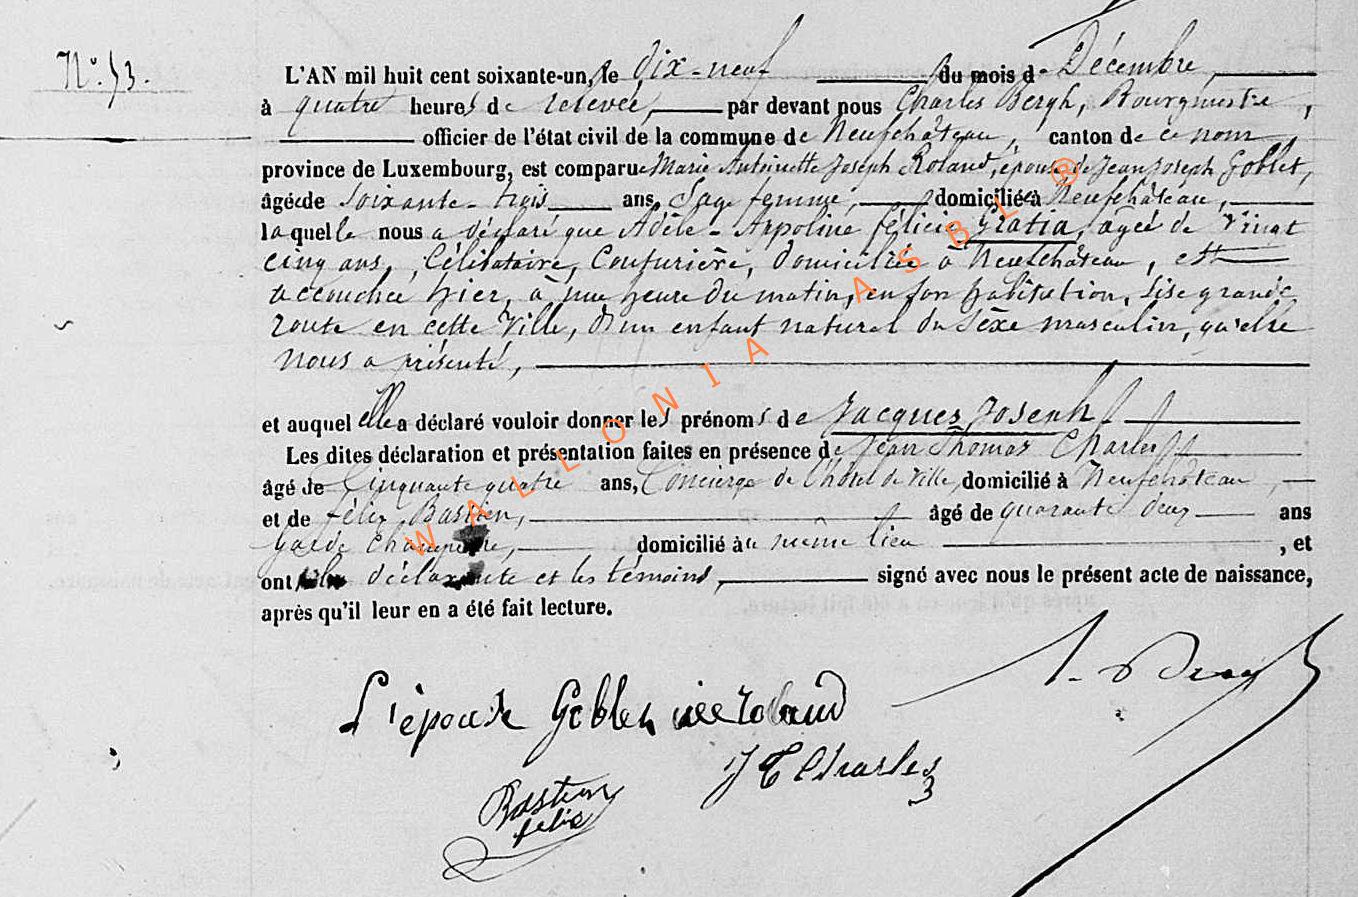 N° 53.
L'AN mil huit cent soixante-un, le dix-neuf du mois de Décembre,
à quatre heures de relevée, par devant nous Charles Bergh, Bourgmestre,
officier de l'état civil de la commune de Neufchâteau, canton de ce nom,
province de Luxembourg, est comparue Marie Antoinette Joseph Roland, épouse de Jean Joseph Goblet,
âgée de soixante-trois ans, Sage femme, domiciliée à Neufchâteau,
laquelle nous a déclaré que Adèle-Appoline félicie Gratia, âgée de Vingt
cinq ans, Célibataire, Couturière, domiciliée à Neufchâteau, est
accouchée hier, à une heure du matin, en son habitation, sise grande
route en cette Ville, d'un enfant naturel du sexe masculin, qu'elle
nous a présenté,
et auquel elle a déclaré vouloir donner les prénoms de Jacques Joseph
Les dites déclaration et présentation faites en présence de Jean Thomas Charles
âgé de Cinquante quatre ans, Concierge de l'hôtel de Ville, domicilié à Neufchâteau,
et de félix Bastien, âgé de quarante deux ans
Garde Champêtre, domicilié au même lieu, et
ont la déclarante et les témoins, signé avec nous le présent acte de naissance,
après qu'il leur en a été fait lecture.
L'épouse Goblet née roland
J T Charles
Bastien
félix
WALLONIA ASBL ®